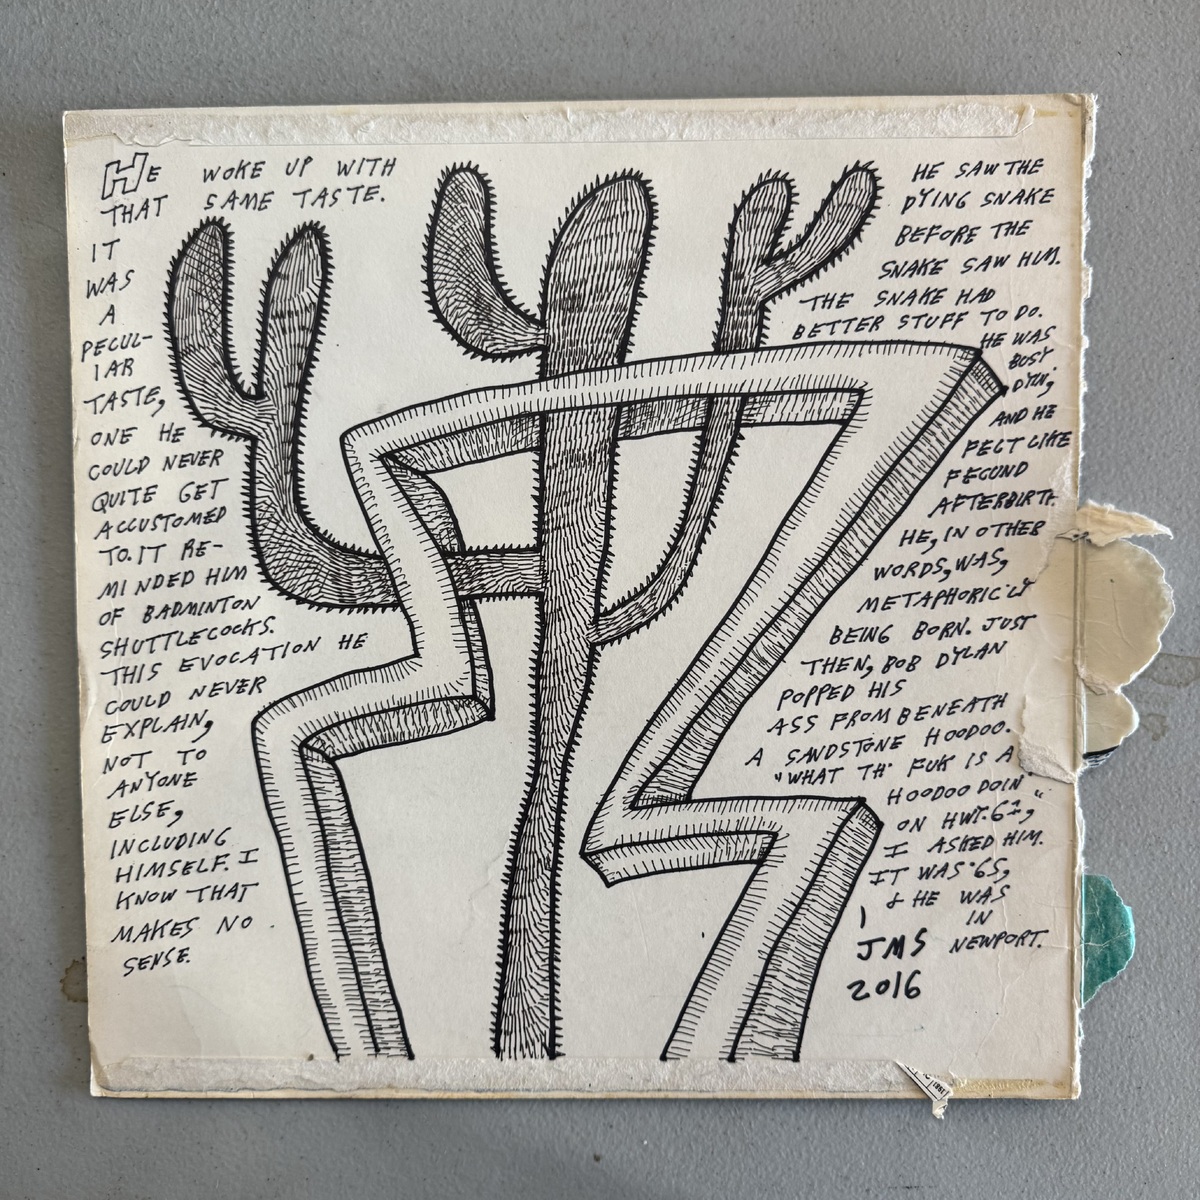 HE WOKE UP WITH
THAT SAME TASTE.
IT
WAS
A
PECUL-
IAR
TASTE,
ONE HE
COULD NEVER
QUITE GET
ACCUSTOMED
TO. IT RE-
MINDED HIM
OF BADMINTON
SHUTTLECOCKS.
THIS EVOCATION HE
COULD NEVER
EXPLAIN,
NOT TO
ANYONE
ELSE,
INCLUDING
HIMSELF. I
KNOW THAT
MAKES NO
SENSE.
HE SAW THE
DYING SNAKE
BEFORE THE
SNAKE SAW HIM.
THE SNAKE HAD
BETTER STUFF TO DO.
HE WAS
BUSY
DYIN',
AND HE
FELT LIKE
FECUND
AFTERBIRTH.
HE, IN OTHER
WORDS, WAS,
METAPHORIC'LY
BEING BORN. JUST
THEN, BOB DYLAN
POPPED HIS
ASS FROM BENEATH
A SANDSTONE HOODOO.
"WHAT TH' FUK IS A
HOODOO DOIN'
ON HWY. 61",
I ASKED HIM.
IT WAS '65,
& HE WAS
IN
NEWPORT.
JMS
2016